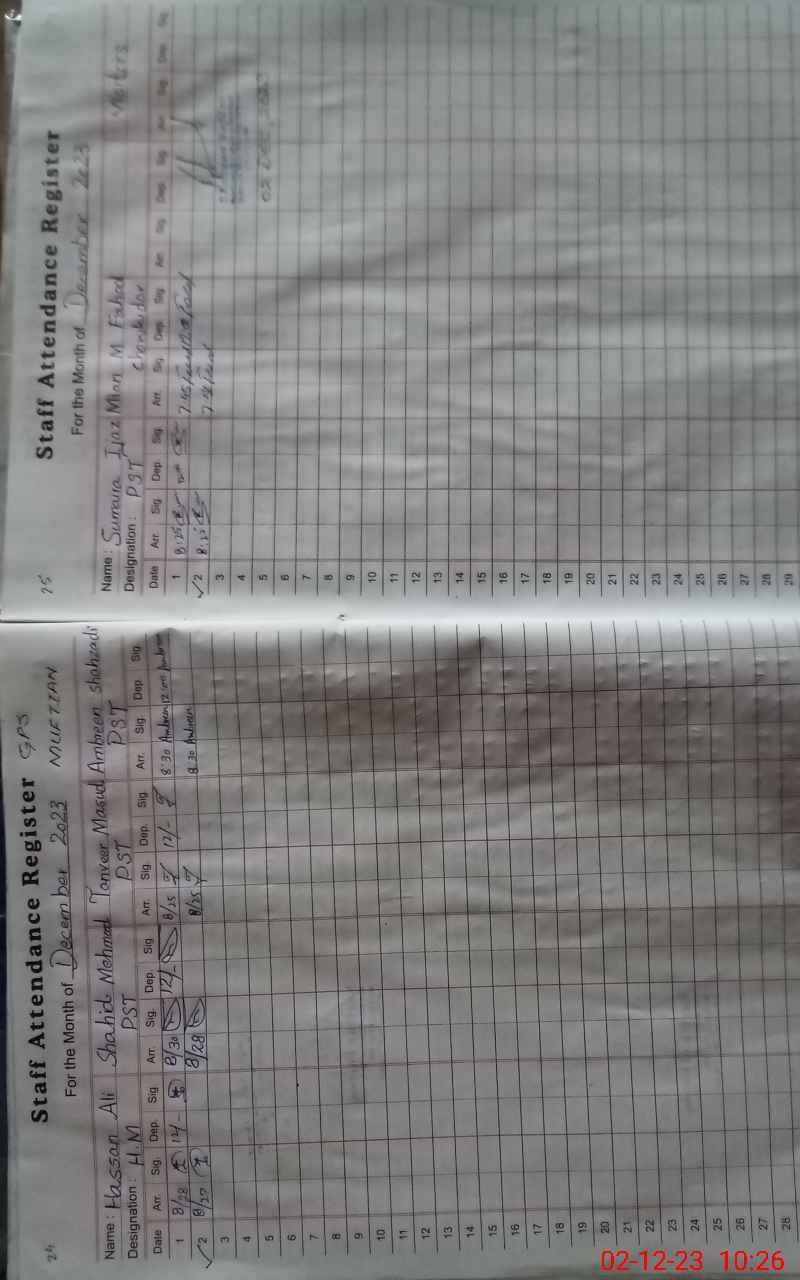 24
Staff Attendance Register GPS
For the Month of December 2023 MUFTIAN
Name : Hassan Ali Shahid Mehmood Tanveer Masud Ambreen Shahzadi
Designation : H.M PST PST PST
Date Arr. Sig. Dep. Sig Arr. Sig. Dep. Sig Arr. Sig. Dep. Sig. Arr. Sig. Dep. Sig.
1 8/28 12/- 8/30 12/- 8/25 12/- 8:30 Ambreen 12:00 Ambreen
2 8/27 8/28 8/25 8:30 Ambreen
3
4
5
6
7
8
9
10
11
12
13
14
15
16
17
18
19
20
21
22
23
24
25
26
27
28
25
Staff Attendance Register
For the Month of December 2023
Name : Sumaira Ijaz Mian M Fahad Visitors
Designation : PST Chowkidar
Date Arr. Sig. Dep. Sig. Arr. Sig. Dep. Sig. Arr. Sig. Dep. Sig. Arr. Sig. Dep. Sig.
1 8:25 7:45
2 8:25 7:58
02 DEC 2023
3
4
5
6
7
8
9
10
11
12
13
14
15
16
17
18
19
20
21
22
23
24
25
26
27
28
29
02-12-23 10:26